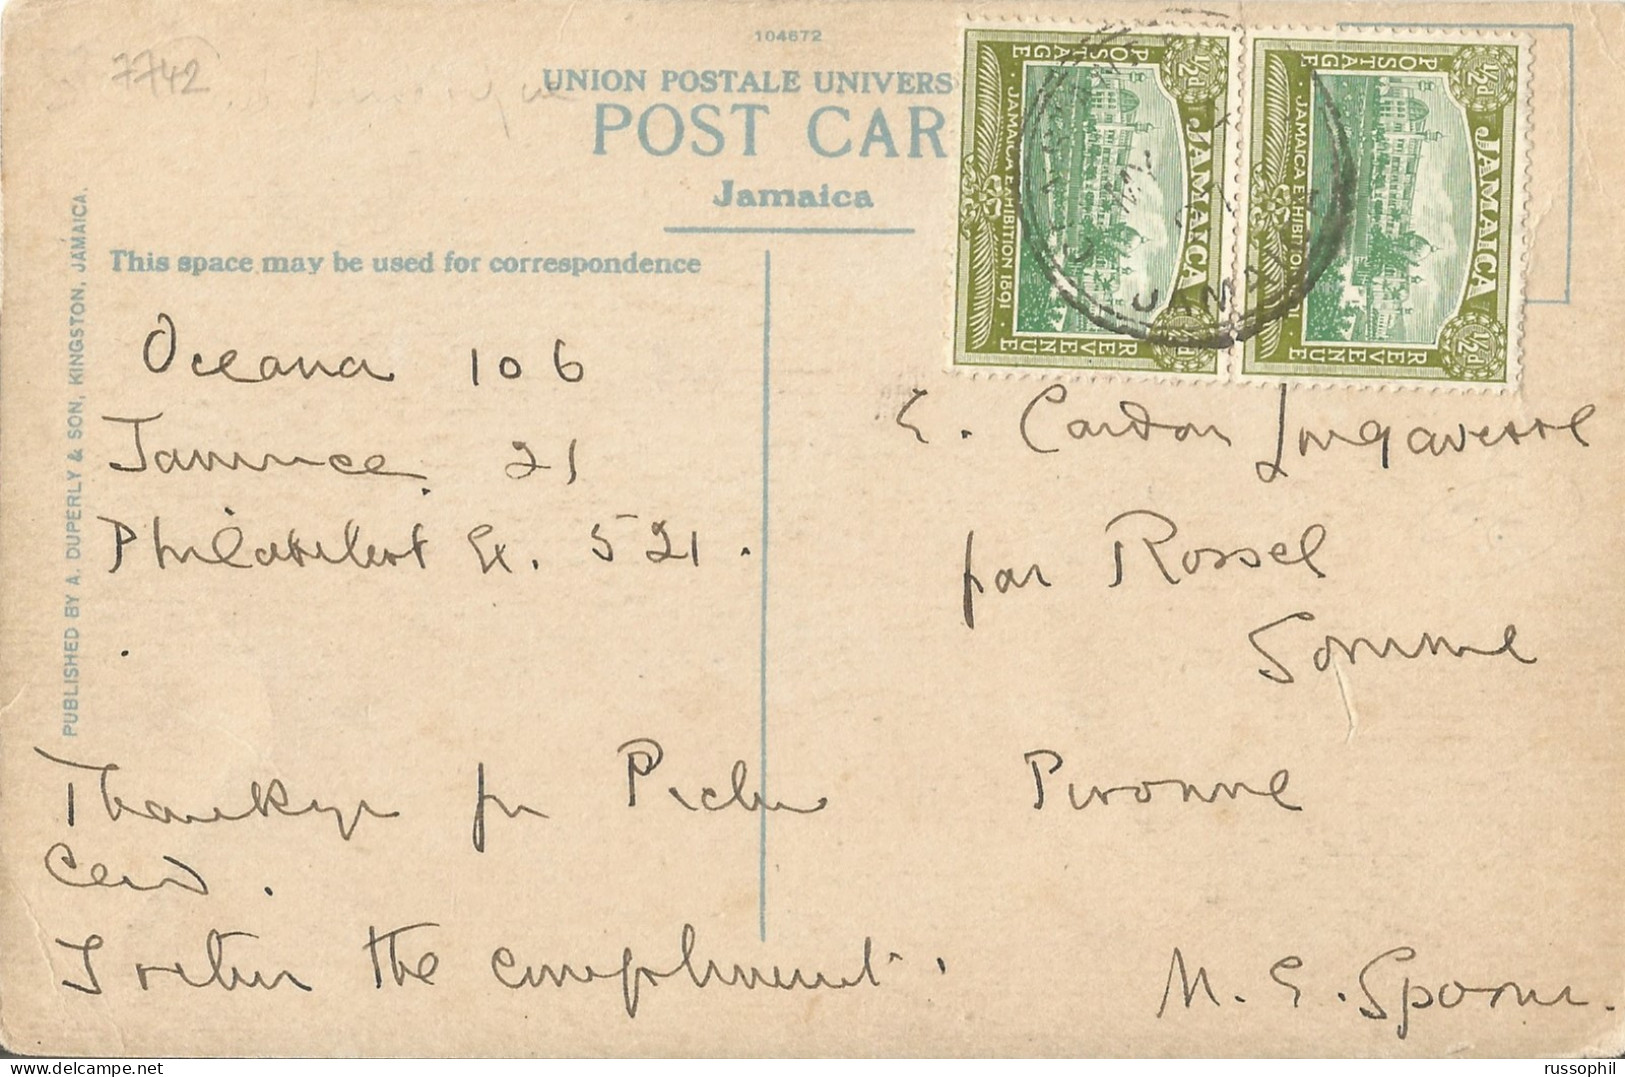 7742
104672
UNION POSTALE UNIVERS
POST CAR
Jamaica
This space may be used for correspondence
PUBLISHED BY A. DUPERLY & SON, KINGSTON, JAMAICA.
½d JAMAICA ½d
POSTAGE REVENUE
JAMAICA EXHIBITION 1891
½d JAMAICA ½d
POSTAGE REVENUE
JAMAICA EXHIBITION 1891
JAMAICA
Oceana 106
21
Ex. 521.
E. Cardon
par Rossel
Somme
Peronne
for
Card.
I return the compliment.
M. E. Spoone.
russophil
www.delcampe.net